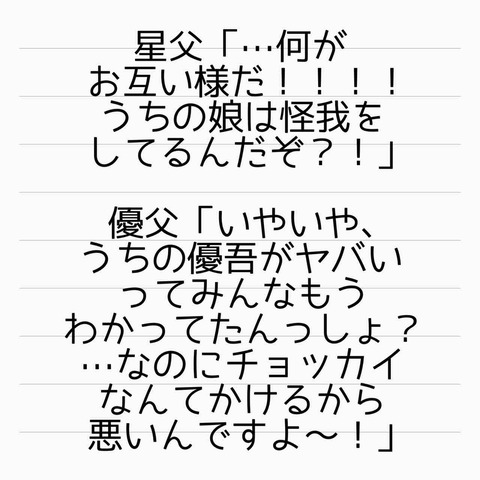 星父「…何が
お互い様だ！！！！
うちの娘は怪我を
してるんだぞ？！」
優父「いやいや、
うちの優吾がヤバい
ってみんなもう
わかってたんっしょ？
…なのにチョッカイ
なんてかけるから
悪いんですよ～！」